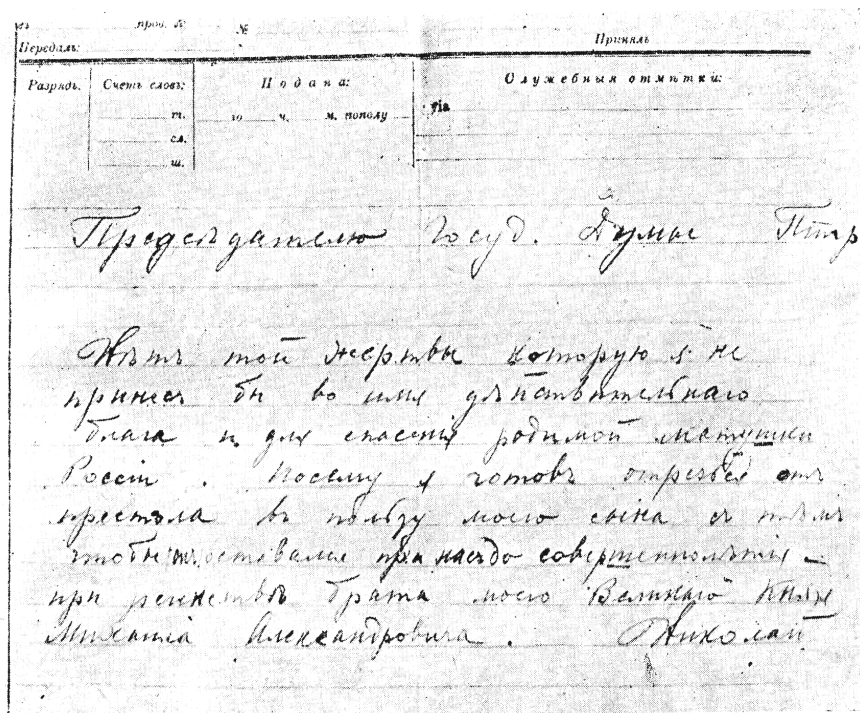 пров. №
№
Передалъ:
Принялъ
Разрядъ.
Счетъ словъ:
Подана:
Служебныя отмѣтки:
т.
го ч. м. пополу
сл.
ш.
Предсѣдателю Госуд. Думы Птгр
Нѣтъ той жертвы которую я не
принесъ бы во имя дѣйствительнаго
блага и для спасенія родимой матушки
Россіи. Посему я готовъ отречься отъ
престола въ пользу моего сына съ тѣмъ
чтобы оставался при насъ до совершеннолѣтія
при регенствѣ брата моего Великаго Князя
Михаила Александровича. Николай